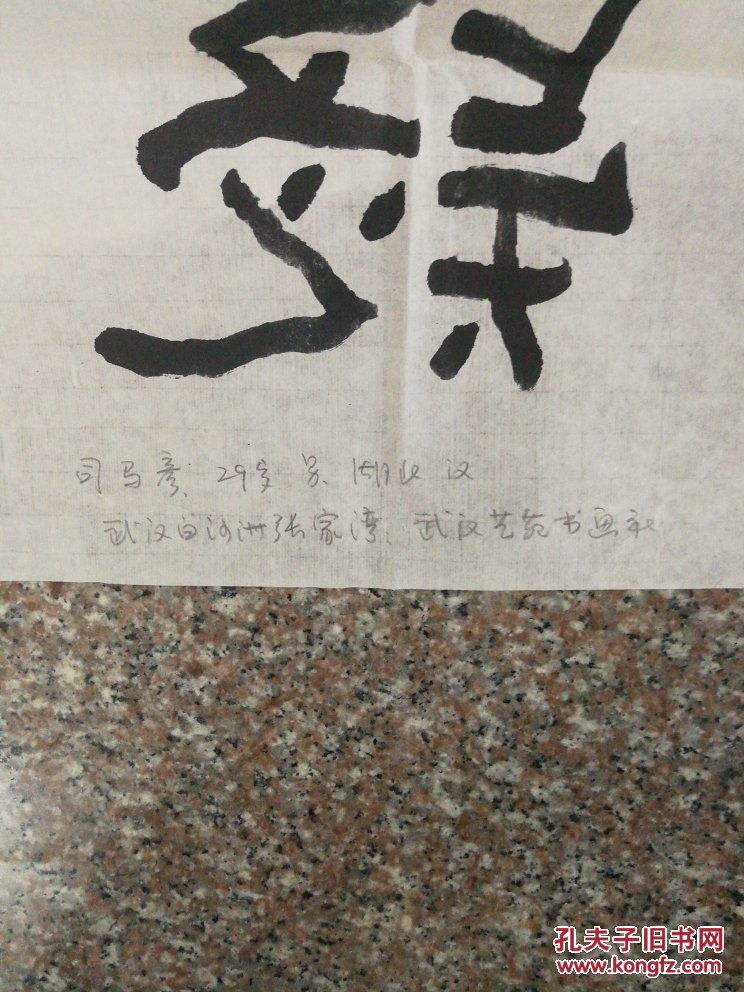 司马彦 29岁 男 湖北 汉
武汉白沙洲张家湾、武汉艺苑书画社
孔夫子旧书网
www.kongfz.com